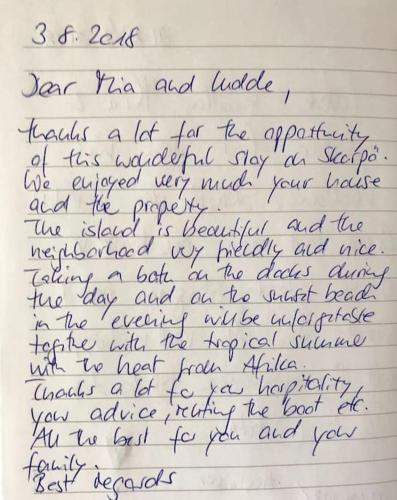 3.8.2018
Dear Mia and Ludde,
thanks a lot for the opportunity
of this wonderful stay on Skarpö.
We enjoyed very much your house
and the property.
The island is beautiful and the
neighborhood very friendly and nice.
Taking a bath on the docks during
the day and on the sunset beach
in the evening will be unforgetable
together with the tropical summer
with the heat from Afrika.
Thanks a lot for your hospitality,
your advice, renting the boat etc.
All the best for you and your
family.
Best regards